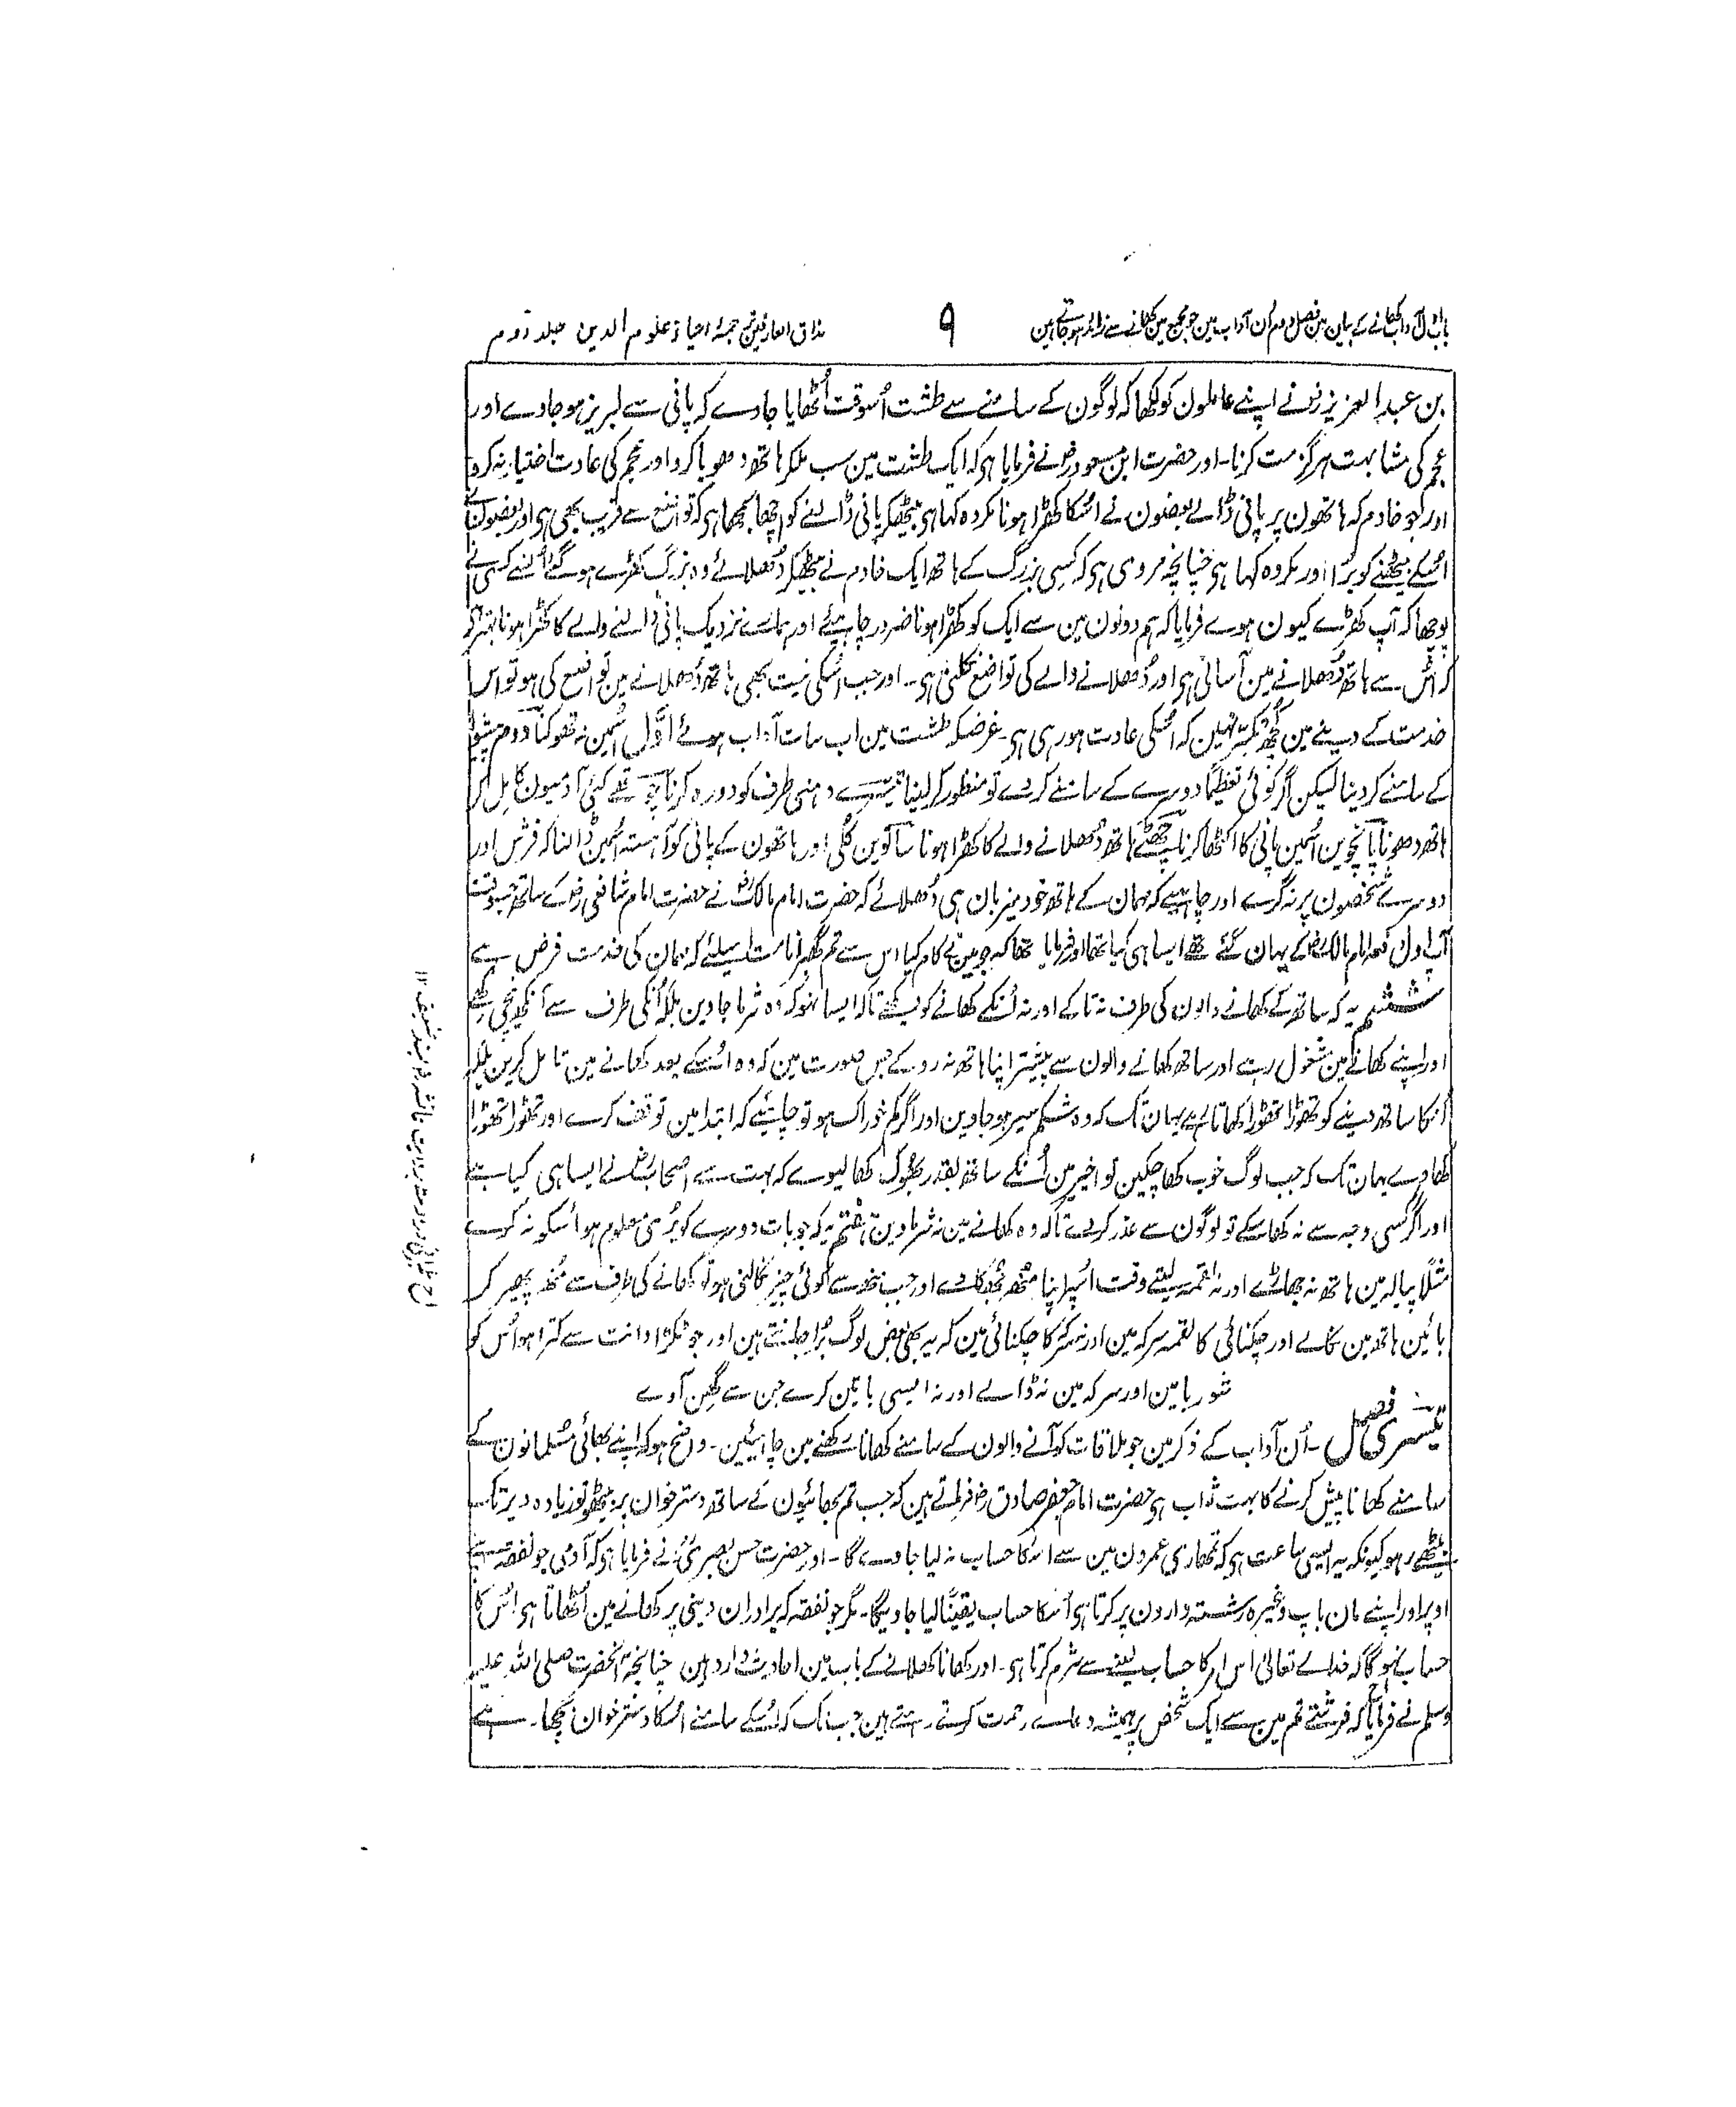 باب اول آداب کھانے کے بیان مین فصل دوم ان آداب مین جو مجمع مین کھانے سے زائد ہو جاتے ہین
۹
مذاق العارفین ترجمۂ احیاء علوم الدین جلد دوم
بن عبد العزیز رضؒ نے اپنے عاملون کو لکھا کہ لوگون کے سامنے سے طشت اُسوقت اُٹھایا جاوے کہ پانی سے لبریز ہو جاوے اور
عجم کی مشابہت ہرگز مت کرنا۔ اور حضرت ابن مسعود رضؓ نے فرمایا ہی کہ ایک طشت مین سب ملکر ہاتھ دھویا کرو اور عجم کی عادت اختیار نہ کرو
اور جو خادم کہ ہاتھون پر پانی ڈالے بعضون نے اُسکا کھڑا ہونا مکروہ کہا ہی بیٹھکر پانی ڈالنے کو اچھا سمجھا ہی کہ تواضع سے قریب بھی ہی اور بعضون نے
اُسکے بیٹھنے کو برا اور مکروہ کہا ہی چنانچہ مروی ہی کہ کسی بزرگ کے ہاتھ ایک خادم نے بیٹھکر دُھلائے وہ بزرگ کھڑے ہو گئے اُنسے کسی نے
پوچھا کہ آپ کھڑے کیون ہوے فرمایا کہ ہم دونون مین سے ایک کو کھڑا ہونا ضرور چاہیئے اور ہمارے نزدیک پانی ڈالنے والے کا کھڑا ہونا بہتر ہی
کہ اُس سے ہاتھ دُھلانے مین آسانی ہی اور دُھلانے والے کی تواضع نکلتی ہی۔ اور جب اُسکی نیت بھی ہاتھ دُھلانے مین تواضع کی ہو تو اس
خدمت کے دینے مین کچھ تکبر نہین کہ اُسکی عادت ہو رہی ہی۔ غرضکہ طشت مین اب سات آداب ہوئے اوّل اُسمین نہ تھوکنا دوم پیشوا
کے سامنے کر دینا لیکن اگر کوئی تعظیماً دوسرے کے سامنے کر دے تو منظور کر لینا تیسرے داہنی طرف کو دورہ کرنا چوتھے کئی آدمیون کا مل کر
ہاتھ دھونا پانچوین اُسمین پانی کا اکٹھا کرنا چھٹے ہاتھ دُھلانے والے کا کھڑا ہونا ساتوین کُلی اور ہاتھون کے پانی کو آہستہ اُسمین ڈالنا کہ فرش اور
دوسرے شخصون پر نہ گرے اور چاہیے کہ مہمان کے ہاتھ خود میزبان ہی دُھلائے کہ حضرت امام مالک رضؒ نے حضرت امام شافعی رضؒ کے ساتھ جسوقت
آپ اول دفعہ امام مالک رضؒ کے یہان گئے تھے ایسا ہی کیا تھا اور فرمایا تھا کہ جو مین نے کام کیا اس سے تم گھبرانا مت اسلیئے کہ مہمان کی خدمت فرض ہے
ششم یہ کہ ساتھ کے کھانے والون کی طرف نہ تاکے اور نہ اُنکے کھانے کو دیکھے تاکہ ایسا نہو کہ وہ شرما جاوین بلکہ اُنکی طرف سے آنکھ نیچی رکھے
اور اپنے کھانے مین مشغول رہے اور ساتھ کھانے والون سے پیشتر اپنا ہاتھ نہ روکے جس صورت مین کہ وہ اُسکے بعد کھانے مین تامل کرین بلکہ
اُنکا ساتھ دینے کو تھوڑا تھوڑا کھاتا رہے یہان تک کہ وہ شکم سیر ہو جاوین اور اگر کم خوراک ہو تو چاہیئے کہ ابتدا مین توقف کرے اور تھوڑا تھوڑا
کھاوے یہان تک کہ جب لوگ خوب کھا چکین تو اخیر مین اُنکے ساتھ بقدر بھوک کھا لیوے کہ بہت سے اصحاب رضؓ نے ایسا ہی کیا ہے
اور اگر کسی وجہ سے نہ کھا سکے تو لوگون سے عذر کر دے تاکہ وہ کھانے مین نہ شرماوین ہفتم یہ کہ جو بات دوسرے کو بُری معلوم ہو اُسکو نہ کرے
مثلاً پیالہ مین ہاتھ نہ جھاڑے اور نہ لقمہ لیتے وقت اُسپر اپنا مُنھ جُھکاوے اور جب مُنھ سے کوئی چیز نکالنی ہو تو کھانے کی طرف سے مُنھ پھیر کر
بائین ہاتھ مین نکالے اور چکنائی کا لقمہ سرکہ مین اور نہ سرکہ کا چکنائی مین کہ یہ بھی بعض لوگ بُرا جانتے ہین اور جو ٹکڑا دانت سے کترا ہو اُس کو
شوربا مین اور سرکہ مین نہ ڈالے اور نہ ایسی باتین کرے جن سے گھِن آوے
تیسری فصل ۔ اُن آداب کے ذکر مین جو ملاقات کو آنے والون کے سامنے کھانا رکھنے مین چاہیئین۔ واضح ہو کہ اپنے بھائی مسلمانون کے
سامنے کھانا پیش کرنے کا بہت ثواب ہی حضرت امام جعفر صادق رضؓ فرماتے ہین کہ جب تم بھائیون کے ساتھ دسترخوان پر بیٹھو تو زیادہ دیر تک
بیٹھے رہو کیونکہ یہ ایسی ساعت ہی کہ تمھاری عمرون مین سے اسکا حساب نہ لیا جاوے گا۔ اور حضرت حسن بصری رحؒ نے فرمایا ہی کہ آدمی جو نفقہ اپنے
اوپر اور اپنے مان باپ وغیرہ رشتہ دارون پر کرتا ہی اُسکا حساب یقیناً لیا جاویگا۔ مگر جو نفقہ کہ برادران دینی پر کھانے مین اُٹھاتا ہی اُس کا
حساب نہو گا کہ خداے تعالیٰ اس امر کا حساب لینے سے شرم کرتا ہی۔ اور کھانا کھلانے کے باب مین احادیث وارد ہین چنانچہ آنحضرت صلی اللہ علیہ
وسلم نے فرمایا کہ فرشتے تم مین سے ایک شخص پر ہمیشہ دعاے رحمت کرتے رہتے ہین جب تک کہ اُسکے سامنے اُسکا دسترخوان بچھا رہتا ہے